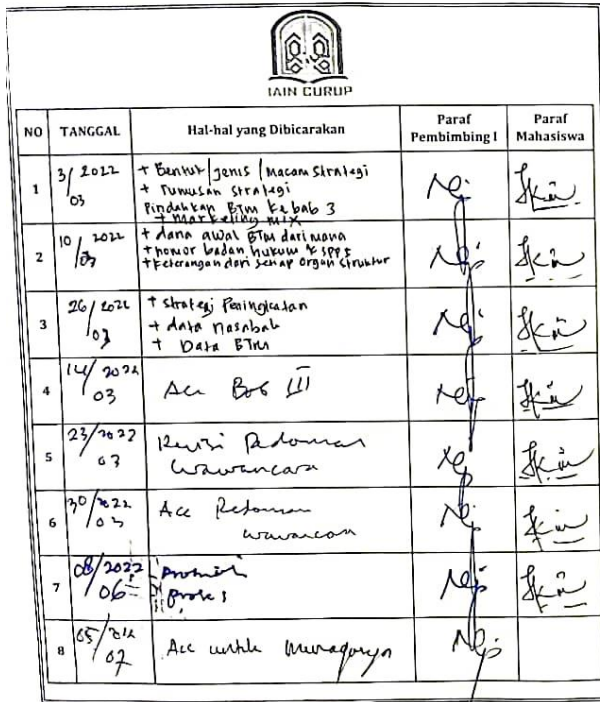 IAIN CURUP
NO TANGGAL Hal-hal yang Dibicarakan Paraf Pembimbing I Paraf Mahasiswa
1 3/03 2022 + Bentuk/jenis/Macam Strategi
+ rumusan strategi
Pindahkan BTM ke bab 3
+ Marketing mix
2 10/03 2022 + dana awal BTM dari mana
+ nomor badan hukum & SPPS
+ keterangan dari setiap organ struktur
3 26/03 2022 + strategi Peningkatan
+ data nasabah
+ Data BTM
4 14/03 2022 Acc Bab III
5 23/03 2022 Revisi Pedoman
wawancara
6 30/03 2022 Acc Pedoman
wawancara
7 08/06 2022
proses
8 05/07 Acc untuk